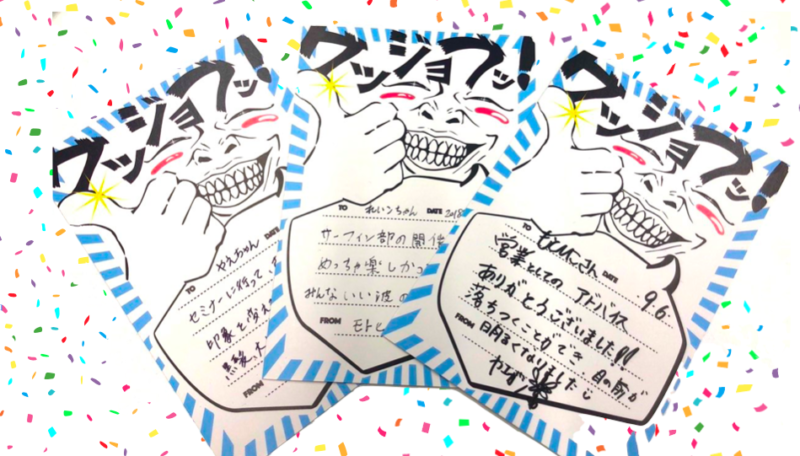 グッジョブッ!
TO やえちゃん DATE
セミナーに
印象を
FROM
グッジョブッ!
TO れいこちゃん DATE 2018
サーフィン部の開催
めっちゃ楽しかっ
みんないい波の
FROM モトヒ
グッジョブッ!
TO さん DATE 9.6.
営業としてのアドバイス
ありがとうございました!!
落ちつくことができ、目の前が
FROM 明るくなりました